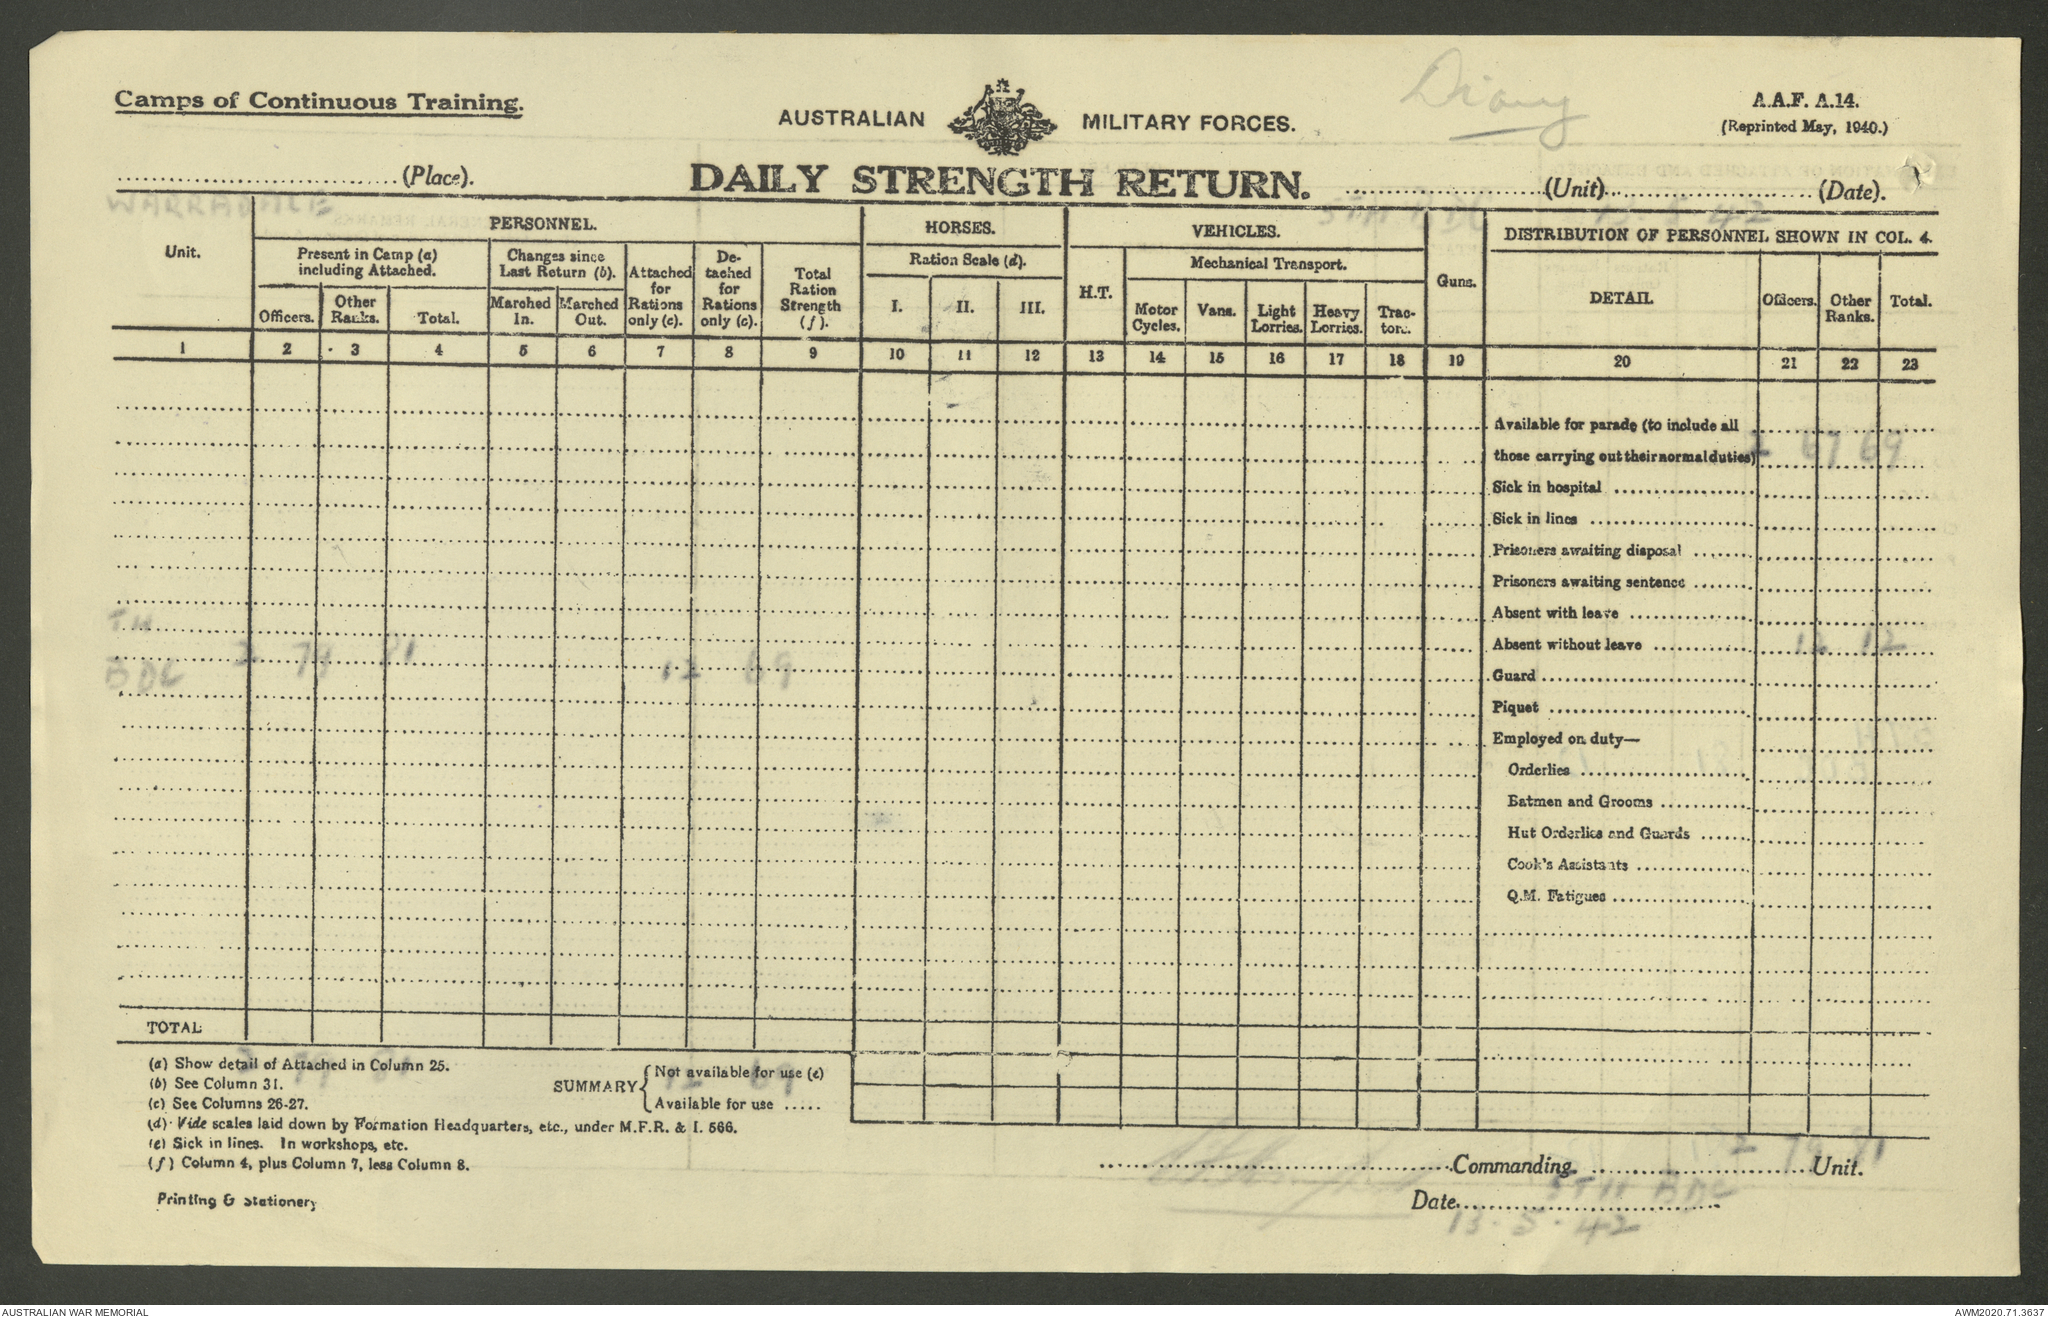 Diary
Camps of Continuous Training.
AUSTRALIAN MILITARY FORCES.
A.A.F. A.14.
(Reprinted May, 1940.)
(Place). DAILY STRENGTH RETURN. (Unit) (Date).
5TH BDC 13.5.42
Unit.
PERSONNEL.
Present in Camp (a) including Attached.
Officers. Other Ranks. Total.
Changes since Last Return (b).
Marched In. Marched Out.
Attached for Rations only (c).
Detached for Rations only (c).
Total Ration Strength (f).
HORSES.
Ration Scale (d).
I. II. III.
VEHICLES.
H.T.
Mechanical Transport.
Motor Cycles. Vans. Light Lorries. Heavy Lorries. Tractors.
Guns.
DISTRIBUTION OF PERSONNEL SHOWN IN COL. 4.
DETAIL Officers. Other Ranks. Total.
1 2 3 4 5 6 7 8 9 10 11 12 13 14 15 16 17 18 19 20 21 22 23
Available for parade (to include all
those carrying out their normal duties) 2 67 69
Sick in hospital
Sick in lines
Prisoners awaiting disposal
Prisoners awaiting sentence
Absent with leave
Absent without leave 12 12
Guard
Piquet
Employed on duty—
Orderlies
Batmen and Grooms
Hut Orderlies and Guards
Cook's Assistants
Q.M. Fatigues
BDC 2 79 81 12 69
TOTAL
2 79 81 12 69
(a) Show detail of Attached in Column 25.
(b) See Column 31.
(c) See Columns 26-27.
(d) Vide scales laid down by Formation Headquarters, etc., under M.F.R. & I. 566.
(e) Sick in lines. In workshops, etc.
(f) Column 4, plus Column 7, less Column 8.
SUMMARY
Not available for use (e)
Available for use
2 79 81
Commanding Unit.
5TH BDC
Date
13.5.42
Printing & Stationery
AUSTRALIAN WAR MEMORIAL
AWM2020.71.3637